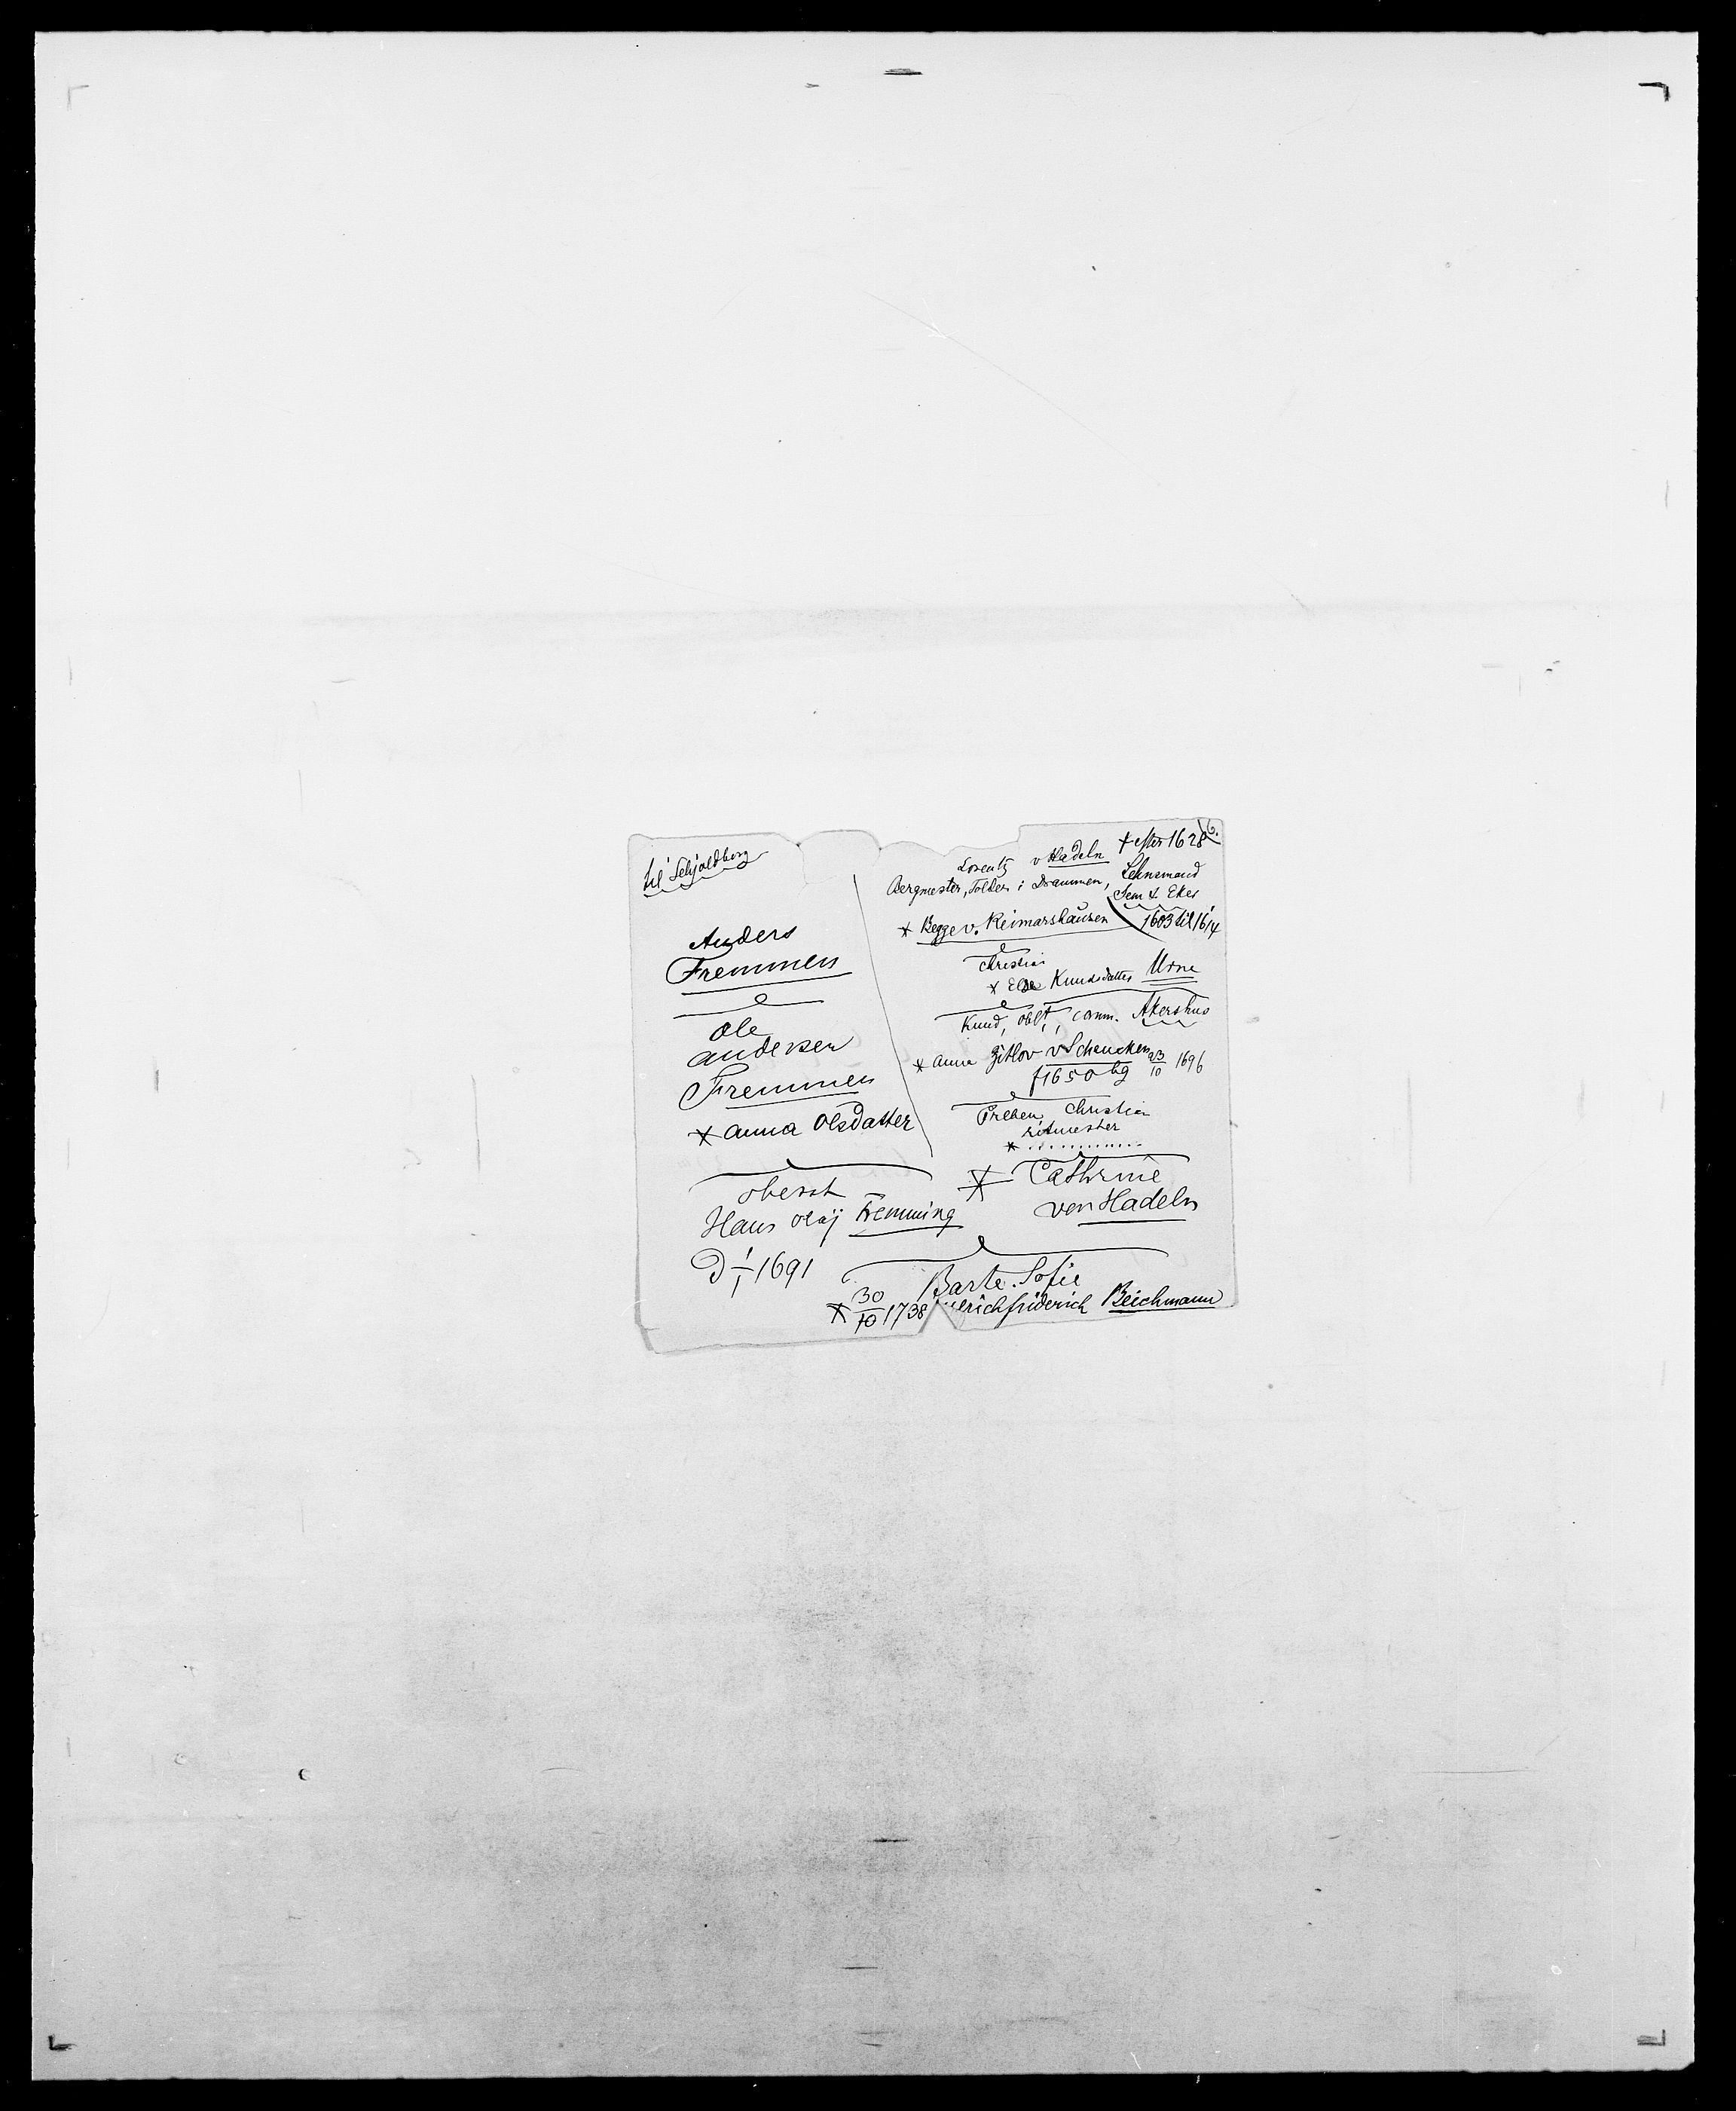 til Schjoldborg
Anders
Fremmen
Ole
Andersen
Fremmen
* Anna Olsdatter
oberst
Hans Olaj Fremming
D 1/1 1691
6.
Lorentz v Hadeln † efter 1628
Bergmester, Tolder i Drammen, Lehnsmand
Sem & Eker
* Begge v. Reimarshausen 1603 til 1614
Christian
* Else Knudsdatter Urne
Knud, oblt, comm. Akershus
* Anna Zitlov v Schencken 23/10 1696
f 1650 bg
Preben Christian
ritmester
* ............
* Cathrine
von Hadeln
Barte Sofie
* 30/10 1738 Ulrich friderich Beichmann